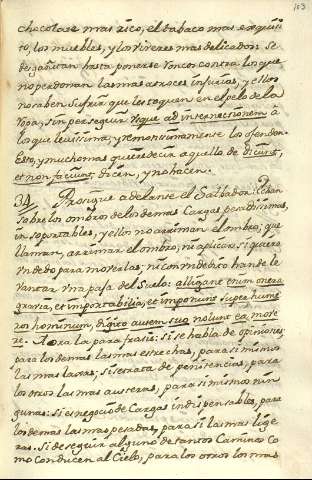 103
chocolate mas rico, el tabaco mas exquisi
to, los muebles, y los viveres mas delicados. Se
desgañitan hasta ponerse roncos contra los que
no perdonan las mas atroces injurias, y ellos
no saben sufrir que les toquen en el pelo de la
ropa, sin perseguir usque ad internecionem à
los que levissima, y remotissimamente los ofenden.
Esto, y mucho mas quiere decir aquello de dicunt,
et non faciunt; dicen, y no hacen.
34 Prosigue adelante el Salvador: Echan
sobre los ombros de los demas Cargas pesadissimas,
insoportables, y ellos no arriman el ombro; que
llaman, arrimar el ombro; ni aplicar si quiera
un dedo para moverlas; ni con un dedito han de le
vantar una paja del Suelo: alligant enim onera
gravia, et importabilia, et imponunt super hume
ros hominum, digito autem suo nolunt ea move
re. Aora la parafrasis: si se habla de opiniones
para los demas las mas estrechas, para si mismos
las mas laxas; si se trata de penitencias, para
los otros las mas austeras, para si mismos nin
gunas: Si es negocio de Cargas indispensables, para
los demas las mas pesadas, para si las mas lige
ras. Si de seguir alguno de tantos Caminos Co
mo conducen al Cielo, para los otros los mas